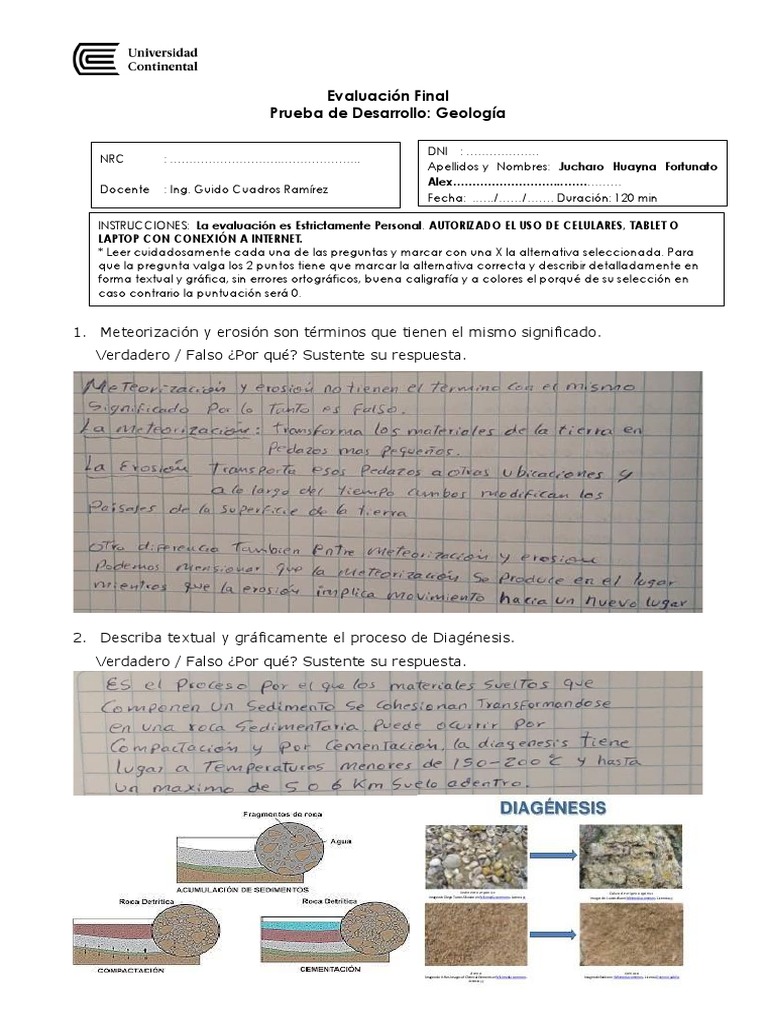 Universidad
Continental
Evaluación Final
Prueba de Desarrollo: Geología
NRC : ……………………………………………..
Docente : Ing. Guido Cuadros Ramírez
DNI : ……………….
Apellidos y Nombres: Jucharo Huayna Fortunato
Alex……………………………….………
Fecha: ……/……/……. Duración: 120 min
INSTRUCCIONES: La evaluación es Estrictamente Personal. AUTORIZADO EL USO DE CELULARES, TABLET O
LAPTOP CON CONEXIÓN A INTERNET.
* Leer cuidadosamente cada una de las preguntas y marcar con una X la alternativa seleccionada. Para
que la pregunta valga los 2 puntos tiene que marcar la alternativa correcta y describir detalladamente en
forma textual y gráfica, sin errores ortográficos, buena caligrafía y a colores el porqué de su selección en
caso contrario la puntuación será 0.
1. Meteorización y erosión son términos que tienen el mismo significado.
Verdadero / Falso ¿Por qué? Sustente su respuesta.
Meteorización y erosión no tienen el termino con el mismo
significado Por lo Tanto es Falso.
La Meteorización: transforma los materiales de la tierra en
Pedazos mas pequeños.
La Erosión Transporta esos Pedazos a otras ubicaciones y
a lo largo del tiempo ambos modifican los
Paisajes de la superficie de la tierra
Otra diferencia También Entre Meteorización y erosion
Podemos mensionar que la Meteorización Se Produce en el lugar
mientras que la erosión implica movimiento hacia un nuevo lugar
2. Describa textual y gráficamente el proceso de Diagénesis.
Verdadero / Falso ¿Por qué? Sustente su respuesta.
Es el Proceso por el que los materiales Sueltos que
Componen un Sedimento Se Cohesionan Transformandose
en una roca Sedimentaria Puede ocurrir por
Compactación y por Cementación, la diagenesis tiene
lugar a Temperaturas menores de 150-200°C y hasta
un maximo de 5 o 6 Km Suelo adentro.
DIAGÉNESIS
Fragmentos de roca
Agua
ACUMULACIÓN DE SEDIMENTOS
Roca Detrítica
COMPACTACIÓN
Roca Detrítica
CEMENTACIÓN